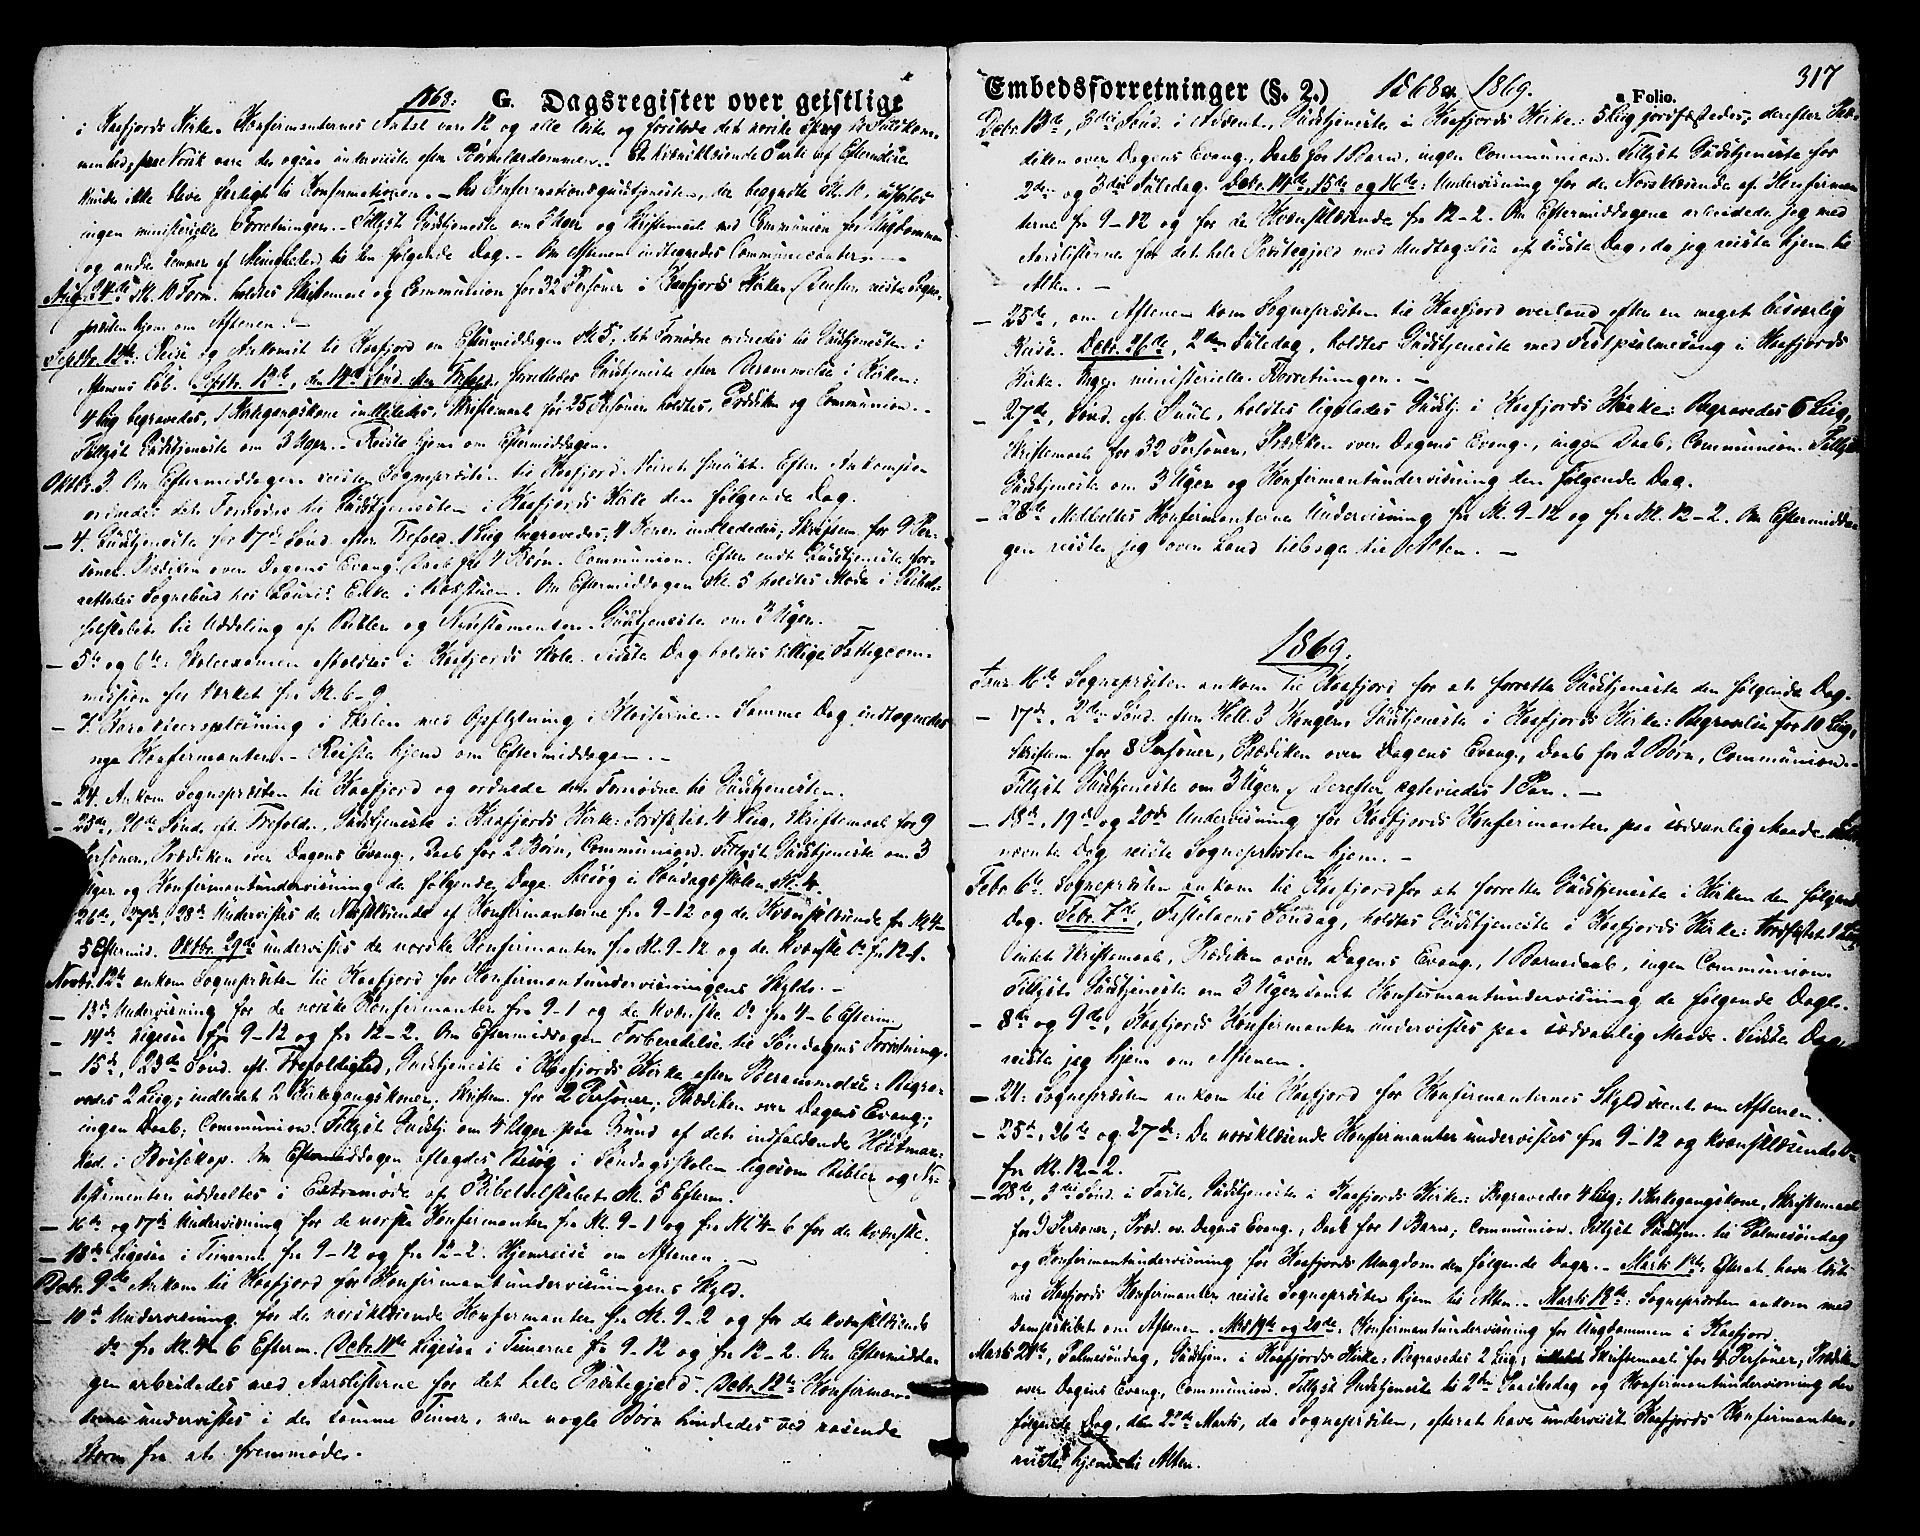 1868. G. Dagsregister over geistlige
i Kaafjords Kirke. Konfirmanternes Antal var 12 og alle læste og forstode det norske Sprog
kunde ikke blive færdigt til Konfirmationen. — Kl. 10, udførtes
ingen ministerielle Forretninger. — Tillyst Gudstjeneste om 3 Uger og Skriftemaal med Communion for Ungdommen
og andre Lemmer af Menigheden til den følgende Dag. — Om Aftenen indtegnedes Communicanter. —
Aug. 24de Kl. 10 Form. holdtes Skriftemaal og Communion for 32 Personer i Kaafjords Kirke. Derefter reiste Sogne-
præsten hjem om Aftenen. —
Septbr. 12te: Reise og Ankomst til Kaafjord om Eftermiddagen Kl. 5; det Fornødne ordnedes til Gudstjenesten i
Aftenens Løb. Septbr. 13de, den 14de Sønd. efter Trefold. forrettedes Gudstjeneste efter Berammelse i Kirken:
4 Lig begravedes, 1 Kirkegangskone indlededes, Skriftemaal for 25 Personer holdtes, Prædiken og Communion. —
Tillyst Gudstjeneste om 3 Uger. — Reiste hjem om Eftermiddagen.
Oktbr. 3. Om Eftermiddagen reiste Sognepræsten til Kaafjord. Veiret smukt. Efter Ankomsten
ordnedes det Fornødne til Gudstjenesten i Kaafjords Kirke den følgende Dag.
— 4. Gudstjeneste paa 17de Sønd. efter Trefold. 1 Lig begravedes; 4 Koner indlededes; Skriftem. for 9 Per-
soner. Prædiken over Dagens Evang. Daab for 4 Børn. Communion. Efter endt Gudstjeneste for-
rettedes Sognebud hos Om Eftermiddagen Kl. 5 holdtes Møde i Bibel-
selskabet til Uddeling af Bibler og Nytestamenter. Gudstjeneste om 3 Uger.
— 5te og 6te: Skoleexamen afholdtes i Kaafjords Skole. Sidste Dag holdtes tillige Fattigcom-
mission for Værket fra Kl. 6–9.
— 7. i Skolen med Opflytning i Klasserne. — Samme Dag indtegnedes
nye Konfirmanter. — Reiste hjem om Eftermiddagen. —
— 24. Ankom Sognepræsten til Kaafjord og ordnede det Fornødne til Gudstjenesten.
— 25de, 20de Sønd. eft. Trefold. Gudstjeneste i Kaafjords Kirke: Jordfæstet 4 Lig, Skriftemaal for 9
Personer, Prædiken over Dagens Evang., Daab for 2 Børn, Communion. Tillyst Gudstjeneste om 3
Uger og Konfirmantundervisning de følgende Dage. Besøg i Søndagsskolen Kl. 4.
26de, 27de, 28de Undervistes de Norsklæsende af Konfirmanterne fra 9–12 og de Kvænsklæsende fra Kl. 4–
5 Eftermid. Oktbr. 29de undervistes de norske Konfirmanter fra Kl. 9–12 og de kvænske Do. fra 12–1.
Novbr. 12te ankom Sognepræsten til Kaafjord for Konfirmantundervisningens Skyld. —
— 13de Undervisning for de norske Konfirmanter fra 9–1 og de kvænske Do. fra 4–6 Efterm.
— 14de Ligesaa fra 9–12 og fra 12–2. Om Eftermiddagen Forberedelse til Søndagens Forretning.
— 15de, 23de Sønd. eft. Trefoldighed, Gudstjeneste i Kaafjords Kirke efter Berammelse: Begra-
vedes 2 Lig; indledet 2 Kirkegangskoner; Skriftem. for 2 Personer; Prædiken over Dagens Evang.;
ingen Daab; Communion. Tillyst Gudstj. om 4 Uger paa Grund af det indfaldende Høstmar-
ked i Bossekop. Om Eftermiddagen aflagdes Besøg i Søndagsskolen ligesom Bibler og Ny-
testamenter uddeeltes i Extramøde af Bibelselskabet Kl. 5 Efterm.
— 16de og 17de Undervisning for de norske Konfirmanter fra Kl. 9–1 og fra Kl. 4–6 for de kvænske.
— 18de Ligesaa i Timerne fra 9–12 og fra 12–2. Hjemreise om Aftenen.
Debr. 9de Ankom til Kaafjord for Konfirmantundervisningens Skyld.
— 10de Undervisning for de norsklæsende Konfirmanter fra Kl. 9–2 og for de kvænsklæsende
do. fra Kl. 4–6 Efterm. Debr. 11te Ligesaa i Timerne fra 9–12 og fra 12–2. Om Eftermidda-
gen arbeidedes med Aarslisterne for det hele Præstegjeld. Debr. 12te: Konfirman-
terne undervistes i de samme Timer, men nogle Børn hindredes ved rasende
Storm fra at fremmøde.
Embedsforretninger (§. 2.) 1868 og 1869. a Folio. 317
Debr. 13de, 3die Sønd. i Advent, Gudstjeneste i Kaafjords Kirke: 5 Lig jordfæstedes, derefter Præ-
diken over Dagens Evang., Daab for 1 Barn, ingen Communion. Tillyst Gudstjeneste for
2den og 3die Juledag. Debr. 14de, 15de og 16de: Undervisning for de Norsklæsende af Konfirman-
terne fra 9–12 og for de Kvænsklæsende fra 12–2. Om Eftermiddagene arbeidede jeg med
Aarslisterne for det hele Præstegjeld med Undtagelse af sidste Dag, da jeg reiste hjem til
Alten. —
— 25de, om Aftenen kom Sognepræsten til Kaafjord overland efter en meget besværlig
Reise. Debr. 26de, 2den Juledag, holdtes Gudstjeneste med Festpsalmesang i Kaafjords
Kirke. Ingen ministerielle Forretninger. —
— 27de, Sønd. eft. Juul, holdtes ligeledes Gudstj. i Kaafjords Kirke: Begravedes 6 Lig,
Skriftemaal for 32 Personer, Prædiken over Dagens Evang., ingen Daab, Communion. Tillyst
Gudstjeneste om 3 Uger og Konfirmantundervisning den følgende Dag.
— 28de Meddeltes Konfirmanterne Undervisning fra Kl. 9–12 og fra Kl. 12–2. Om Eftermidda-
gen reiste jeg over Land tilbage til Alten. —
1869.
Janr. 16de Sognepræsten ankom til Kaafjord for at forrette Gudstjeneste den følgende Dag.
— 17de, 2den Sønd. efter Hell. 3 Konger, Gudstjeneste i Kaafjords Kirke: Begravelse for 10 Lig,
Skriftem. for 8 Personer, Prædiken over Dagens Evang., Daab for 2 Børn, Communion. —
Tillyst Gudstjeneste om 3 Uger. Derefter egteviedes 1 Par. —
— 18de, 19de og 20de Undervisning for Kaafjords Konfirmanter paa sædvanlig Maade. Sidst-
nævnte Dag reiste Sognepræsten hjem. —
Febr. 6te Sognepræsten ankom til Kaafjord for at forrette Gudstjeneste i Kirken den følgende
Dag. Febr. 7de, Fastelavns Søndag, holdtes Gudstjeneste i Kaafjords Kirke: Jordfæstet 1 Lig,
intet Skriftemaal, Prædiken over Dagens Evang., 1 Barnedaab, ingen Communion.
Tillyst Gudstjeneste om 3 Uger samt Konfirmantundervisning de følgende Dage.
— 8de og 9de, Kaafjords Konfirmanter undervistes paa sædvanlig Maade. Sidste Dag
reiste jeg hjem om Aftenen.
— 24: Sognepræsten ankom til Kaafjord for Konfirmanternes Skyld sent om Aftenen.
— 25de, 26de og 27de: De norsklæsende Konfirmanter undervistes fra 9–12 og kvænsklæsende do.
fra Kl. 12–2.
— 28de, 3die Sønd. i Faste, Gudstjeneste i Kaafjords Kirke: Begravedes 4 Lig; 1 Kirkegangskone, Skriftemaal
for 9 Personer; Præd. ov. Dagens Evang., Daab for 1 Barn; Communion. Tillyst Gudstjen. til Palmesøndag
og Konfirmantundervisning for Kaafjords Ungdom den følgende Dag. — Marts 1ste: Efterat have læst
med Kaafjords Konfirmanter reiste Sognepræsten hjem til Alten. — Marts 18de: Sognepræsten ankom med
Dampskibet om Aftenen. Mars 19de og 20de: Konfirmantundervisning for Ungdommen i Kaafjord.
Marts 21de, Palmesøndag, Gudstjen. i Kaafjords Kirke: Begravedes 2 Lig; Skriftemaal for 4 Personer, Prædiken
over Dagens Evang., Communion. Tillyst Gudstjeneste til 2den Paaskedag og Konfirmantundervisning den
følgende Dag, den 22de Marts, da Sognepræsten, efterat have undervist Kaafjords Konfirmanter,
reiste hjem til Alten.